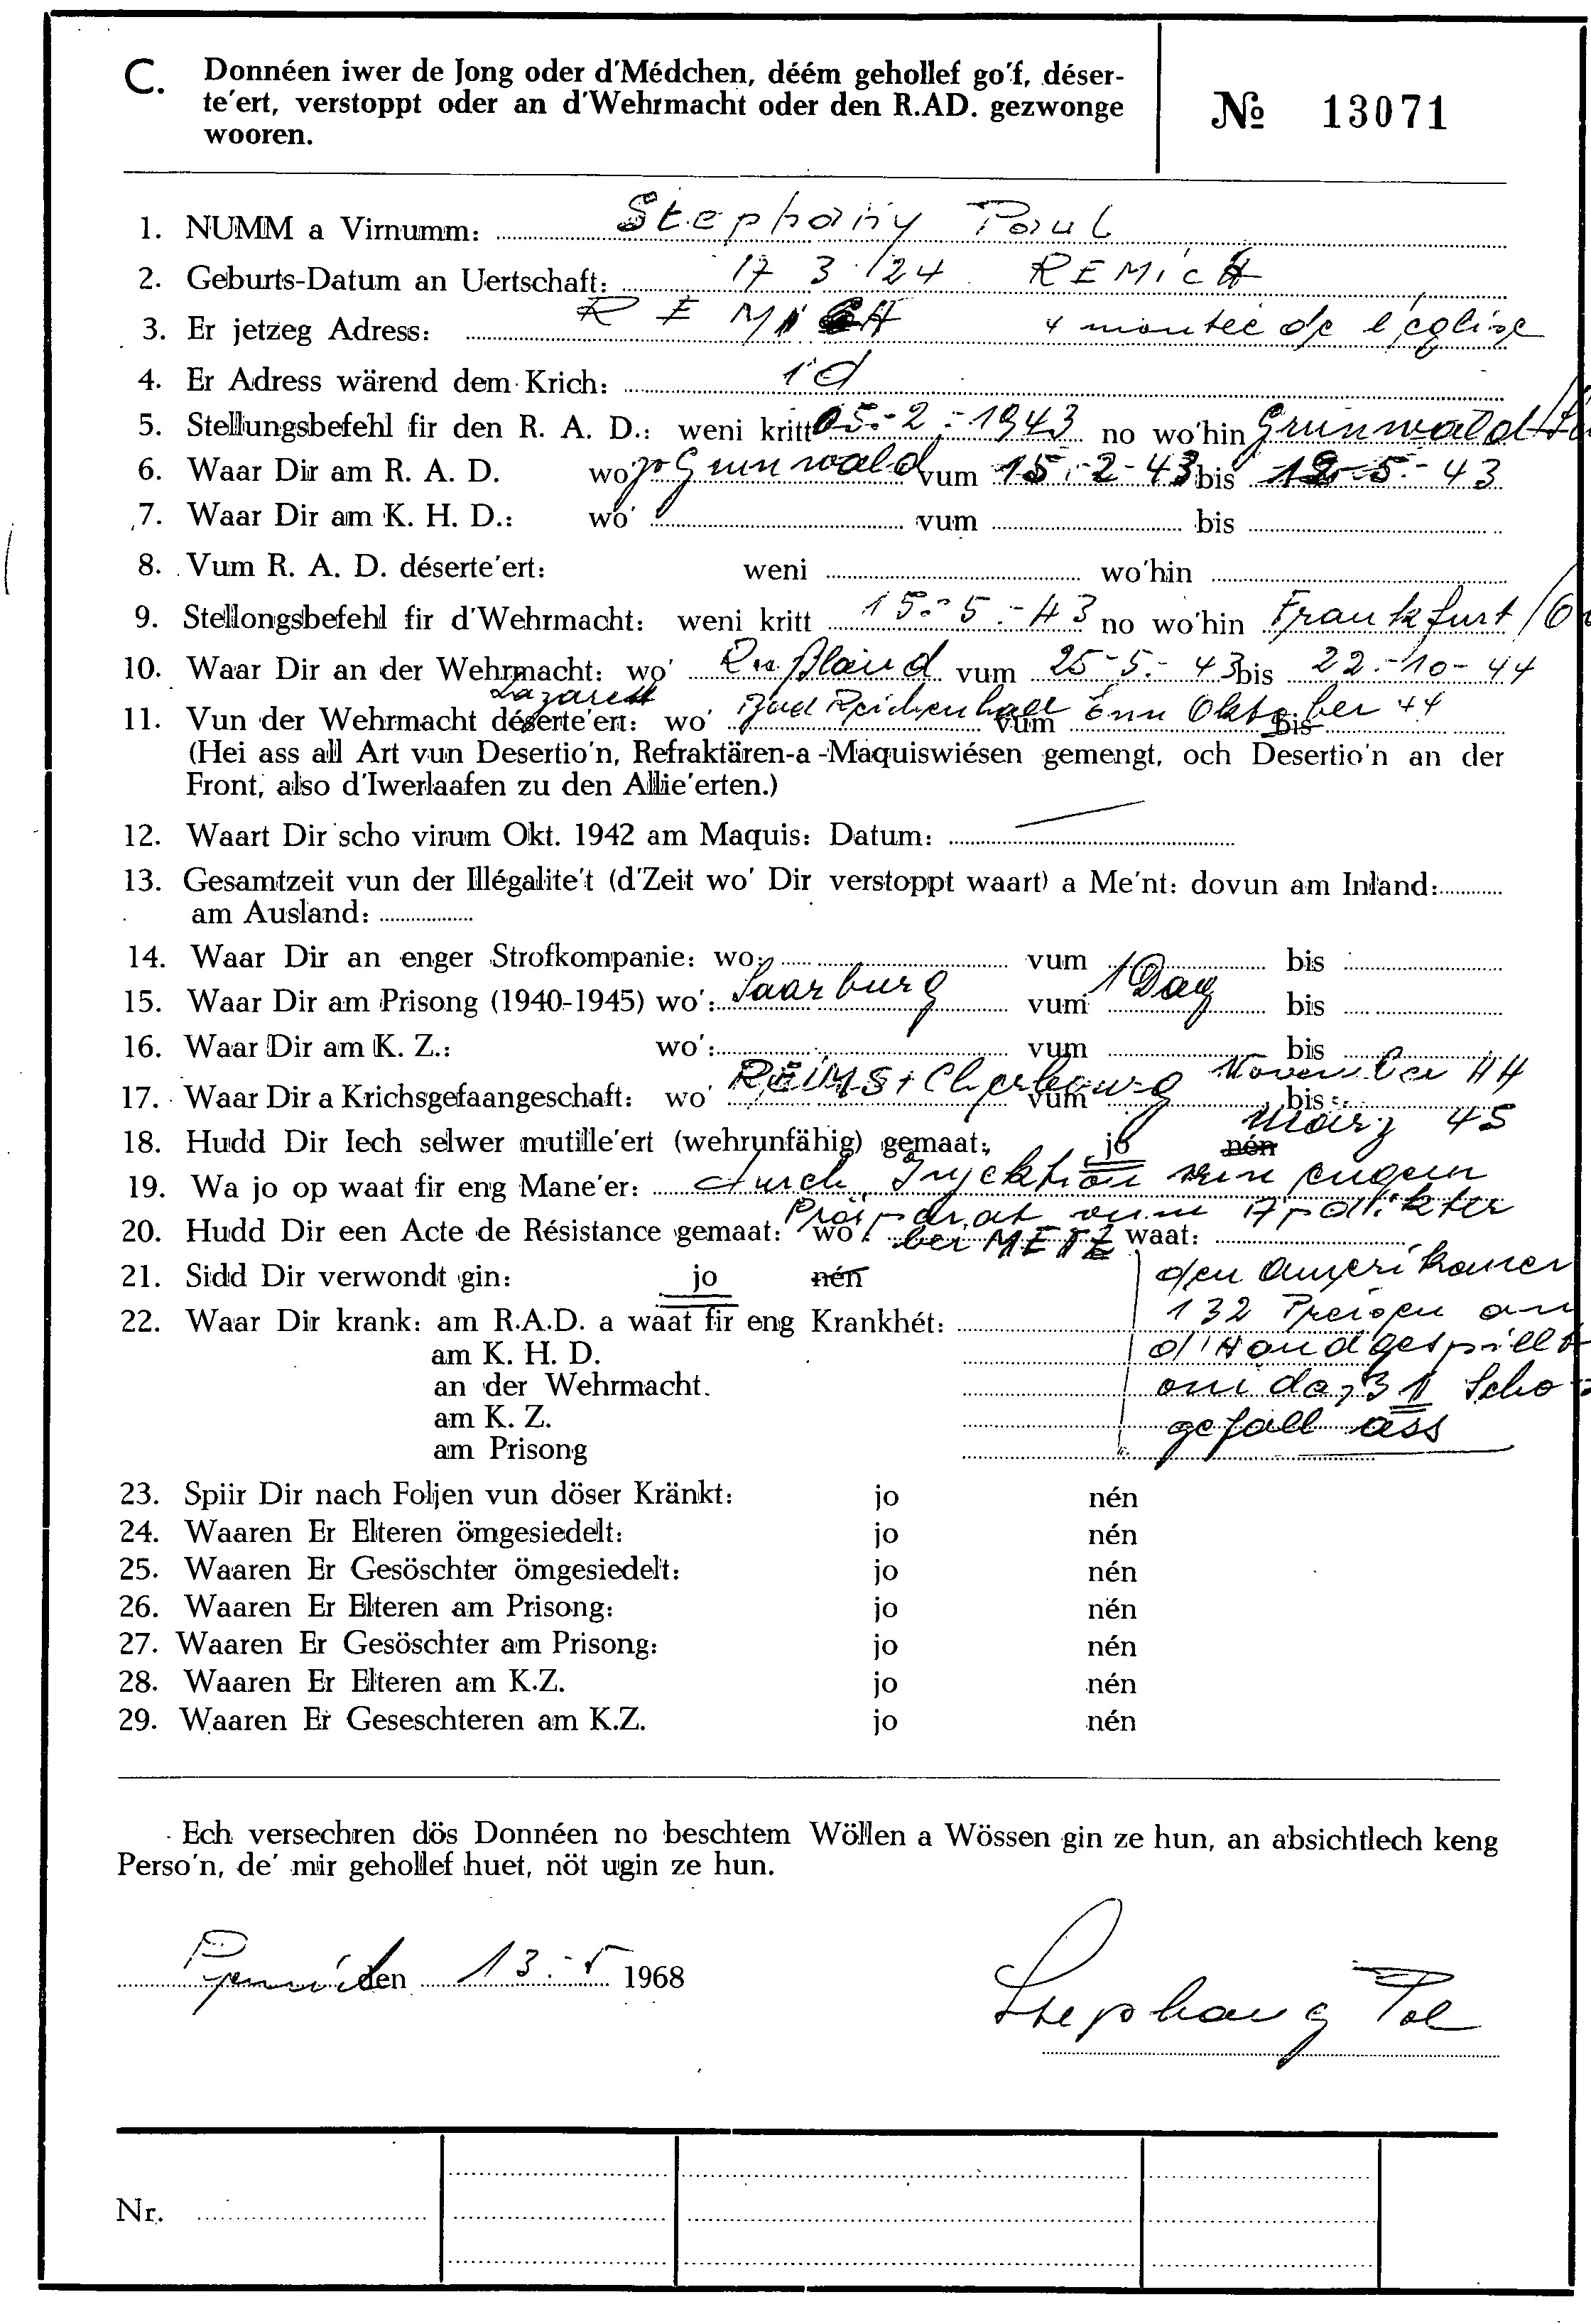 C. Donnéen iwer de Jong oder d'Médchen, déém gehollef go'f, déser-
te'ert, verstoppt oder an d'Wehrmacht oder den R.AD. gezwonge
wooren.
№ 13071
1. NUMM a Virnumm: Stephany Paul
2. Geburts-Datum an Uertschaft: 17 3 /24 REMICH
3. Er jetzeg Adress: REMICH 4 montée de l'église
4. Er Adress wärend dem Krich: id
5. Stellungsbefehl fir den R. A. D.: weni kritt 05.-2.-1943 no wo'hin Grunwald
6. Waar Dir am R. A. D. wo' Grunwald vum 15.-2-43 bis 12-5.-43
7. Waar Dir am K. H. D.: wo' vum bis
8. Vum R. A. D. déserte'ert: weni wo'hin
9. Stellongsbefehl fir d'Wehrmacht: weni kritt 15.-5.-43 no wo'hin Frankfurt
10. Waar Dir an der Wehrmacht: wo' Rußland vum 25-5.-43 bis 22.-10-44
Lazarett
11. Vun der Wehrmacht déserte'ert: wo' Bad Reichenhall vum Enn Oktober 44 bis
(Hei ass all Art vun Desertio'n, Refraktären-a -Maquiswiésen gemengt, och Desertio'n an der
Front, also d'Iwerlaafen zu den Allie'erten.)
12. Waart Dir scho virum Okt. 1942 am Maquis: Datum:
13. Gesamtzeit vun der Illégalite't (d'Zeit wo' Dir verstoppt waart) a Me'nt: dovun am Inland:
am Ausland:
14. Waar Dir an enger Strofkompanie: wo: vum bis
15. Waar Dir am Prisong (1940-1945) wo': Saarburg vum 1 Dag bis
16. Waar Dir am K. Z.: wo': vum bis
17. Waar Dir a Krichsgefaangeschaft: wo' REIMS + Cherbourg vum November 44 bis
März 45
18. Hudd Dir Iech selwer mutille'ert (wehrunfähig) gemaat: jo nén
19. Wa jo op waat fir eng Mane'er: durch Injektion vun engem
Präparat vum Apdikter
20. Hudd Dir een Acte de Résistance gemaat: wo': bei METZ waat:
den Amerikaner
132 Preisen an
d'Hand gespillt
oni das 1 Scho
gefall ass
21. Sidd Dir verwondt gin: jo nén
22. Waar Dir krank: am R.A.D. a waat fir eng Krankhét:
am K. H. D.
an der Wehrmacht.
am K. Z.
am Prisong
23. Spiir Dir nach Foljen vun döser Kränkt: jo nén
24. Waaren Er Elteren ömgesiedelt: jo nén
25. Waaren Er Gesöschter ömgesiedelt: jo nén
26. Waaren Er Elteren am Prisong: jo nén
27. Waaren Er Gesöschter am Prisong: jo nén
28. Waaren Er Elteren am K.Z. jo nén
29. Waaren Er Geseschteren am K.Z. jo nén
Ech versechren dös Donnéen no beschtem Wöllen a Wössen gin ze hun, an absichtlech keng
Perso'n, de' mir gehollef huet, nöt ugin ze hun.
den 13.-5 1968
Stephany Pol
Nr.